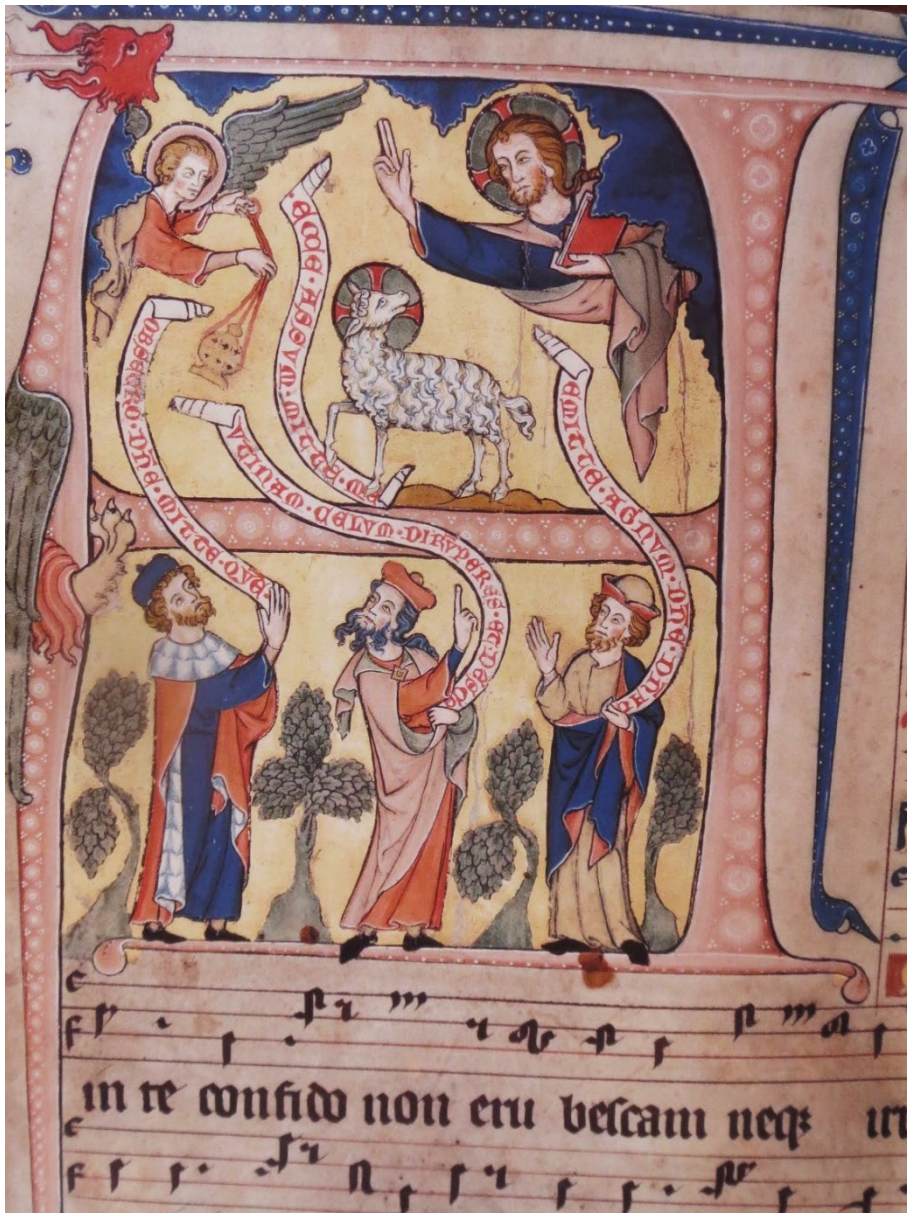 ECCE · ASSVM · MITTE · ME
OBSECRO · DNE · MITTE · QVE
VTINAM · CELVM · DIRVPERES · ET · DESCE
EMITTE · AGNVM · DNE
in te confido non eru bescam neqꝫ